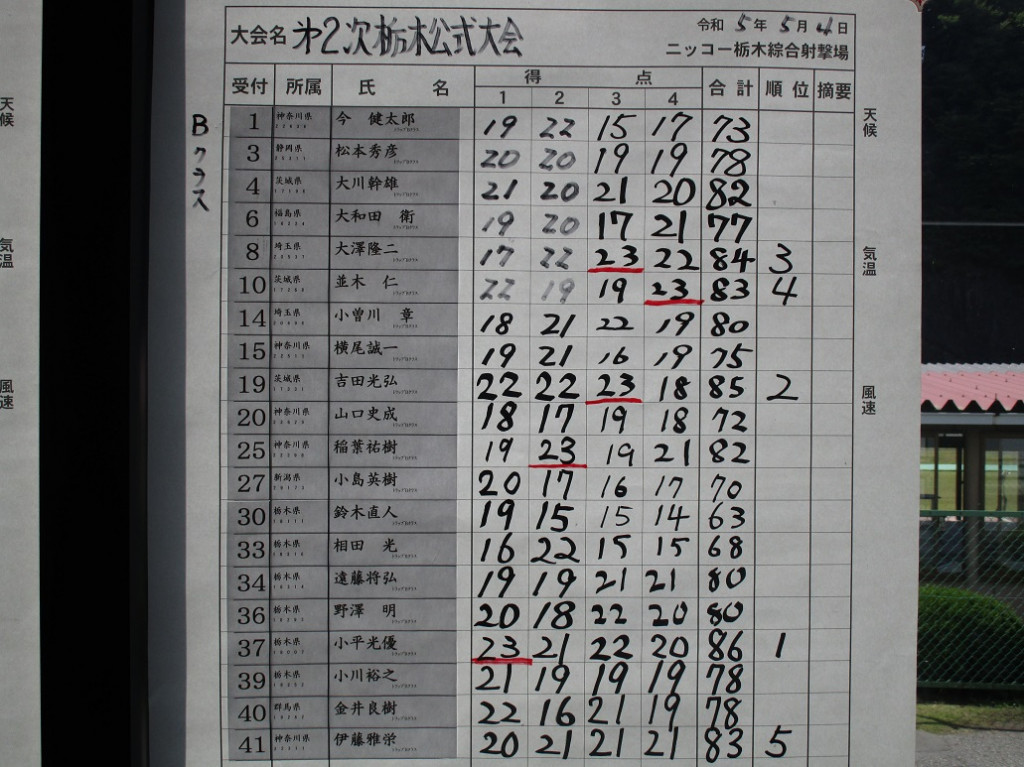 大会名 オ2次栃木公式大会
令和5年5月4日
ニッコー栃木綜合射撃場
受付 所属 氏名 得点 合計 順位 摘要
1 2 3 4
Bクラス
1 神奈川県 今 健太郎 19 22 15 17 73
3 静岡県 松本秀彦 20 20 19 19 78
4 茨城県 大川幹雄 21 20 21 20 82
6 福島県 大和田 衛 19 20 17 21 77
8 埼玉県 大澤隆二 17 22 23 22 84 3
10 茨城県 並木 仁 22 19 19 23 83 4
14 埼玉県 小曽川 章 18 21 22 19 80
15 神奈川県 横尾誠一 19 21 16 19 75
19 茨城県 吉田光弘 22 22 23 18 85 2
20 神奈川県 山口史成 18 17 19 18 72
25 神奈川県 稲葉祐樹 19 23 19 21 82
27 新潟県 小島英樹 20 17 16 17 70
30 栃木県 鈴木直人 19 15 15 14 63
33 栃木県 相田 光 16 22 15 15 68
34 栃木県 遠藤将弘 19 19 21 21 80
36 栃木県 野澤 明 20 18 22 20 80
37 栃木県 小平光優 23 21 22 20 86 1
39 栃木県 小川裕之 21 19 19 19 78
40 群馬県 金井良樹 22 16 21 19 78
41 神奈川県 伊藤雅栄 20 21 21 21 83 5
天候
気温
風速
天候
気温
風速